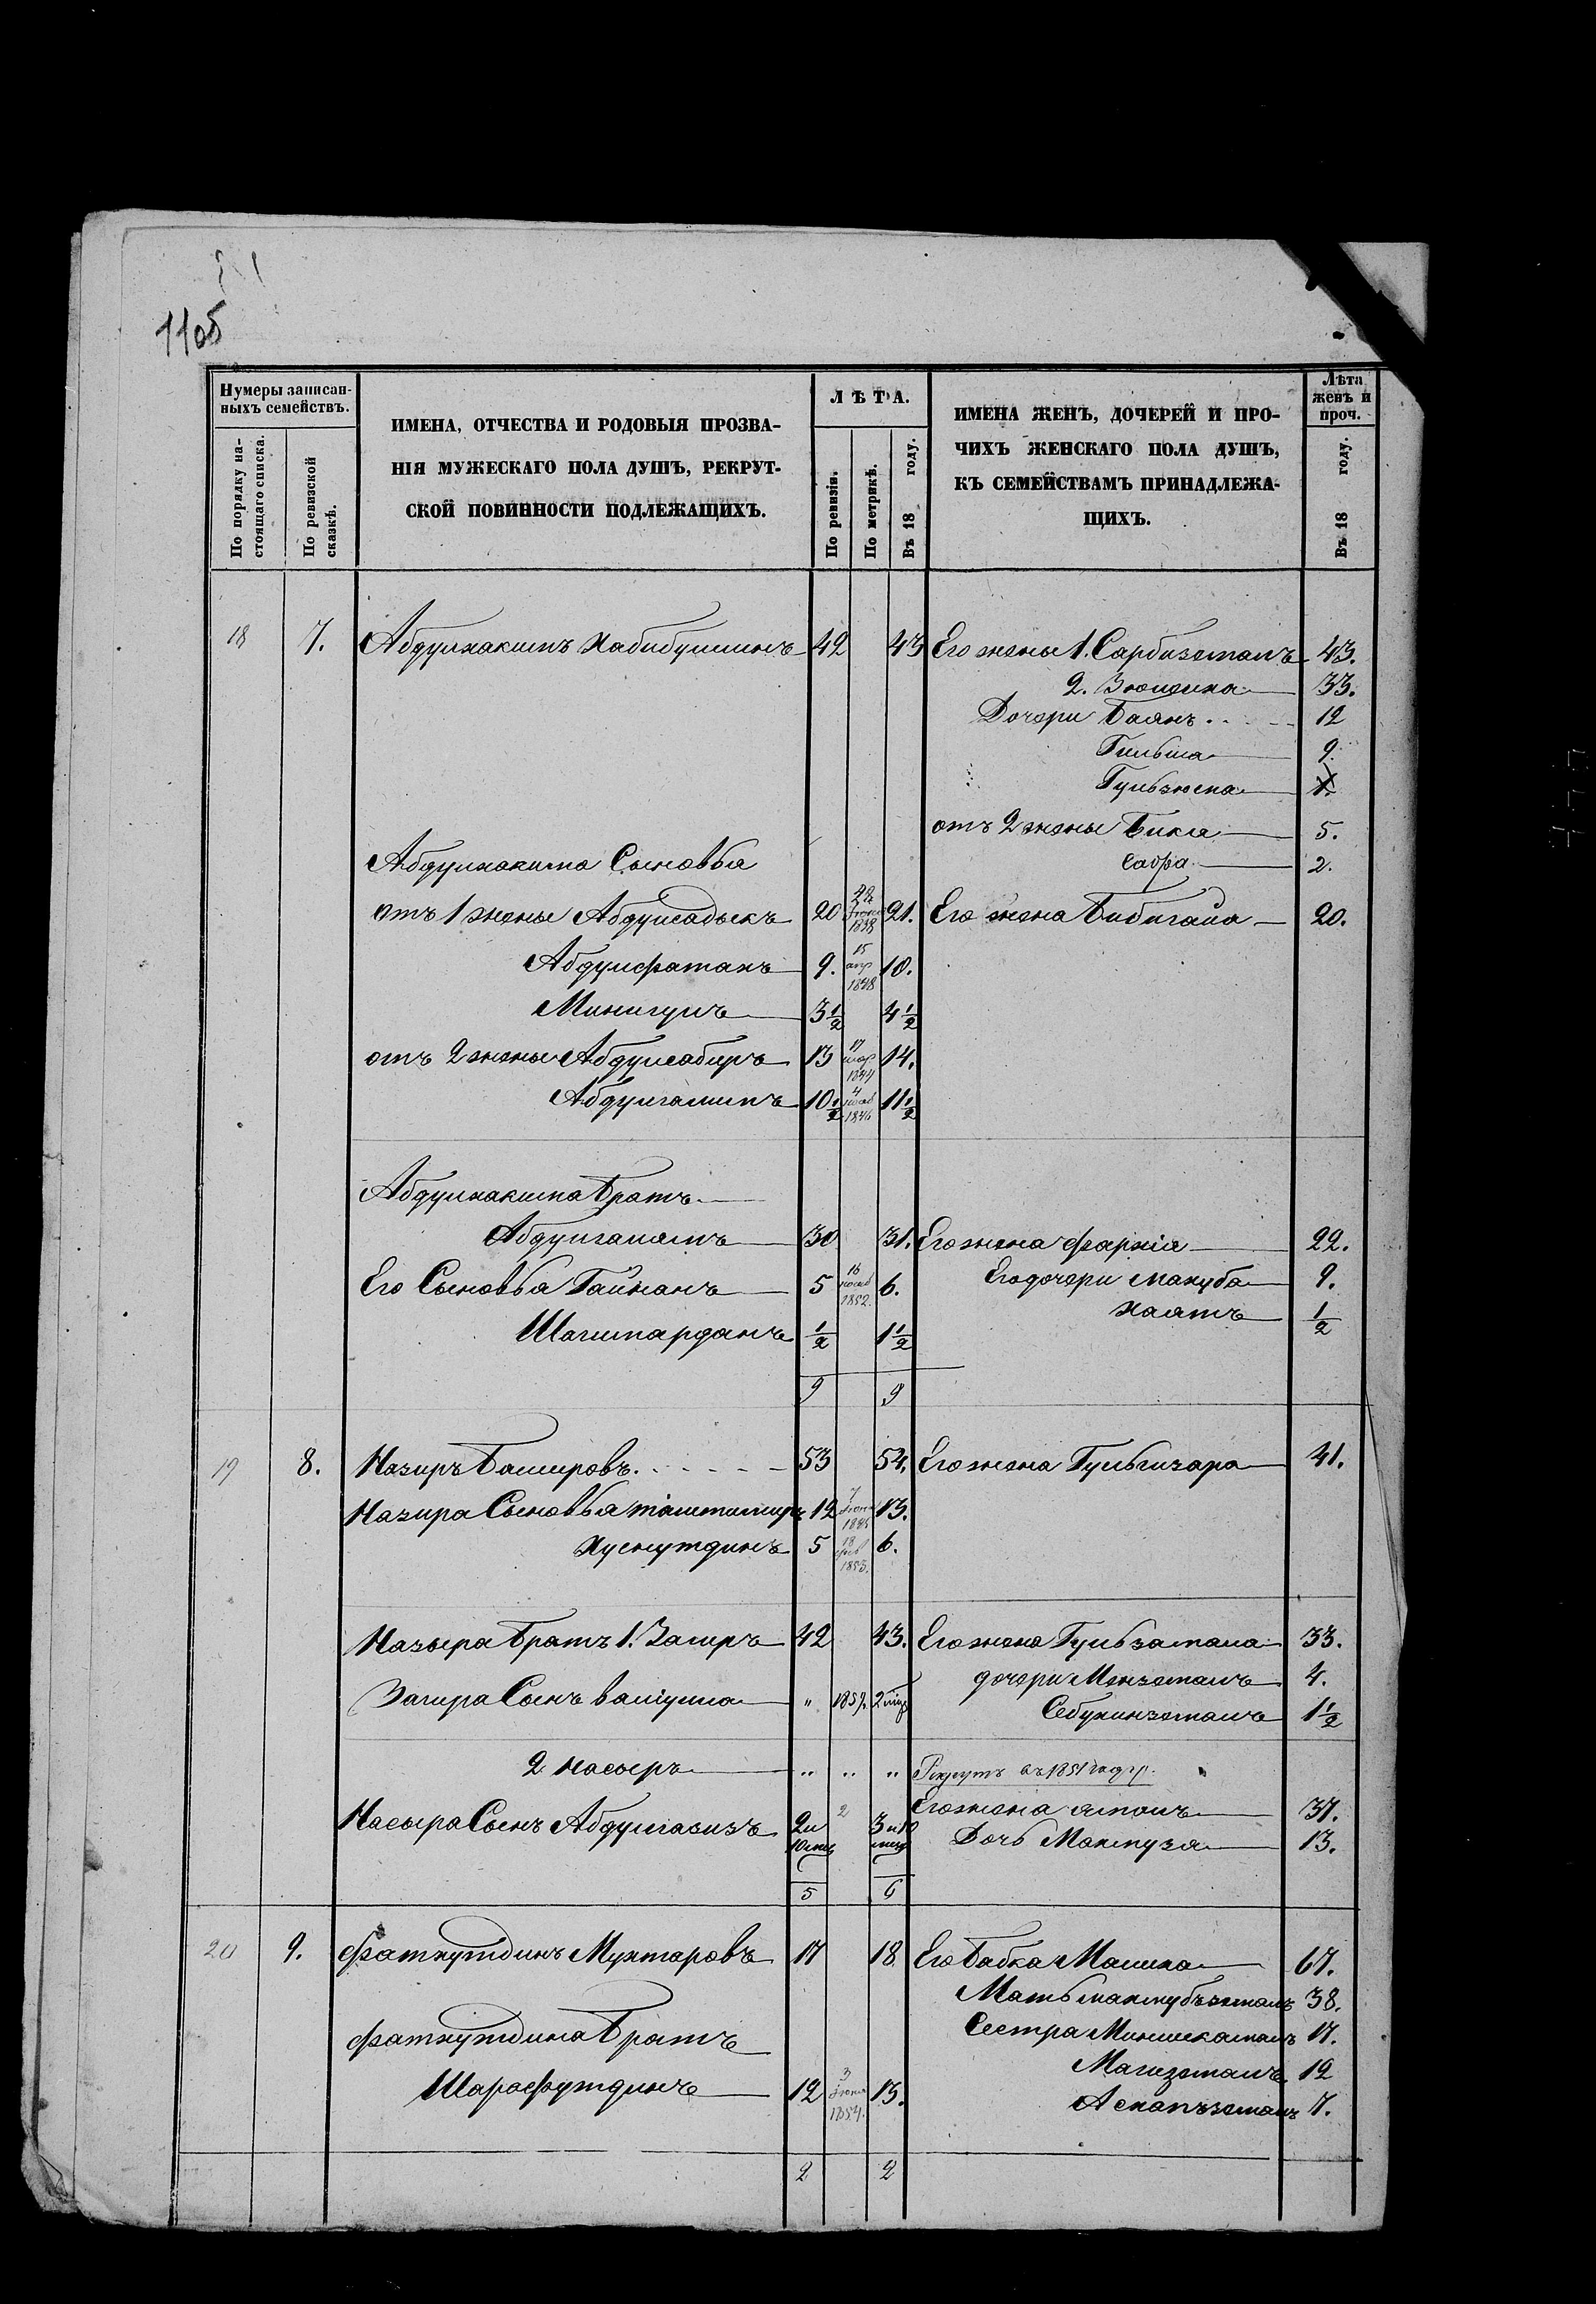 11об
Нумеры записан-
ныхъ семействъ.
По порядку на-
стоящаго списка.
По ревизской
сказкѣ.
ИМЕНА, ОТЧЕСТВА И РОДОВЫЯ ПРОЗВА-
НІЯ МУЖЕСКАГО ПОЛА ДУШЪ, РЕКРУТ-
СКОЙ ПОВИННОСТИ ПОДЛЕЖАЩИХЪ.
ЛѢТА.
По ревизіи.
По метрикѣ.
Въ 18 году.
ИМЕНА ЖЕНЪ, ДОЧЕРЕЙ И ПРО-
ЧИХЪ ЖЕНСКАГО ПОЛА ДУШЪ,
КЪ СЕМЕЙСТВАМЪ ПРИНАДЛЕЖА-
ЩИХЪ.
Лѣта
женъ и
проч.
Въ 18 году.
18 7. Абдулхакимъ Хабибуллинъ 42 43 Его жены 1. Сарбиземалъ 43.
2. 33.
Дочери Баянъ 12
9.
1.
отъ 2 жены Бика 5.
Абдулхакима Сыновья
Садра 2.
отъ 1 жены Абдулсадыкъ 20 1838 21. Его жена Бибигайа 20.
Абдулфатахъ 9. 15 апр 1848 10.
Минигулъ 3½ 4½
отъ 2 жены Абдулсабиръ 13 17 мар 1844 14.
Абдулгалимъ 10½ 4 1846 11½
Абдулхакима Братъ
30 31. Его жена Фархія 22.
Его Сыновья Гайнанъ 5 16 1852. 6. Его дочери Макуба 9.
Шагимарданъ ½ 1½ Хаятъ ½
9 9
19 8. Назиръ Башировъ 53 54. Его жена 41.
Назира Сыновья 12 7 13.
Хуснутдинъ 5 18 1853. 6.
Назыра Братъ 1. Загиръ 42 43. Его жена 33.
Загира Сынъ Валіулла " 1857. дочери Мензомалъ 4.
1½
2. Насыръ " " " Рекрутъ въ 1851 году.
Его жена 37.
Насыра Сынъ Абдулгазизъ 2 и 10 мѣс 2 3 и 10 мѣс Дочь Махтуза 13.
5 6
20 9. Фатхутдинъ Мухтаровъ 17 18 Его Бабка Малика 67.
Мать 38.
Фатхутдина Братъ
Сестра 17.
Шарафутдинъ 12 3 13. Магизомалъ 12
7.
2 2